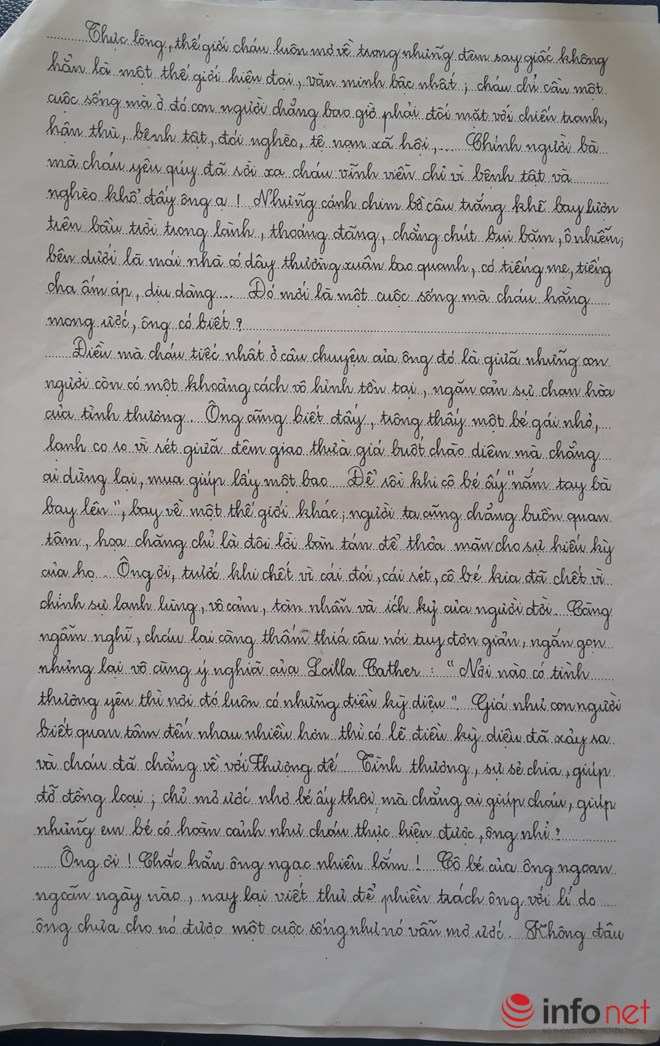 Thực lòng, thế giới cháu luôn mơ về trong những đêm say giấc không
hẳn là một thế giới hiện đại, văn minh bậc nhất; cháu chỉ cần một
cuộc sống mà ở đó con người chẳng bao giờ phải đối mặt với chiến tranh,
hận thù, bệnh tật, đói nghèo, tệ nạn xã hội,... Chính người bà
mà cháu yêu quý đã rời xa cháu vĩnh viễn chỉ vì bệnh tật và
nghèo khổ đấy ông ạ! Những cánh chim bồ câu trắng khẽ bay lượn
trên bầu trời trong lành, thoáng đãng, chẳng chút bụi bặm, ô nhiễm;
bên dưới là mái nhà có dây thường xuân bao quanh, có tiếng mẹ, tiếng
cha ấm áp, dịu dàng... Đó mới là một cuộc sống mà cháu hằng
mong ước, ông có biết?
Điều mà cháu tiếc nhất ở câu chuyện của ông đó là giữa những con
người còn có một khoảng cách vô hình tồn tại, ngăn cản sự chan hòa
của tình thương. Ông cũng biết đấy, trông thấy một bé gái nhỏ,
lanh co ro vì rét giữa đêm giao thừa giá buốt chào diêm mà chẳng
ai dừng lại, mua giúp lấy một bao. Để rồi khi cô bé ấy "nắm tay bà
bay lên", bay về một thế giới khác; người ta cũng chẳng buồn quan
tâm, họa chăng chỉ là đôi lời bàn tán để thỏa mãn cho sự hiếu kỳ
của họ. Ông ơi, trước khi chết vì cái đói, cái rét, cô bé kia đã chết vì
chính sự lạnh lùng, vô cảm, tàn nhẫn và ích kỷ của người đời. Càng
ngẫm nghĩ, cháu lại càng thấm thía câu nói tuy đơn giản, ngắn gọn
nhưng lại vô cùng ý nghĩa của Loilla Cather: "Nơi nào có tình
thương yêu thì nơi đó luôn có những điều kỳ diệu". Giá như con người
biết quan tâm đến nhau nhiều hơn thì có lẽ điều kỳ diệu đã xảy ra
và cháu đã chẳng về với Thượng đế. Tình thương, sự sẻ chia, giúp
đỡ đồng loại; chỉ mơ ước nhỏ bé ấy thôi mà chẳng ai giúp cháu, giúp
những em bé có hoàn cảnh như cháu thực hiện được, ông nhỉ?
Ông ơi! Chắc hẳn ông ngạc nhiên lắm! Cô bé của ông ngoan
ngoãn ngày nào, nay lại viết thư để phiền trách ông với lí do
ông chưa cho nó được một cuộc sống như nó vẫn mơ ước. Không đâu
infonet